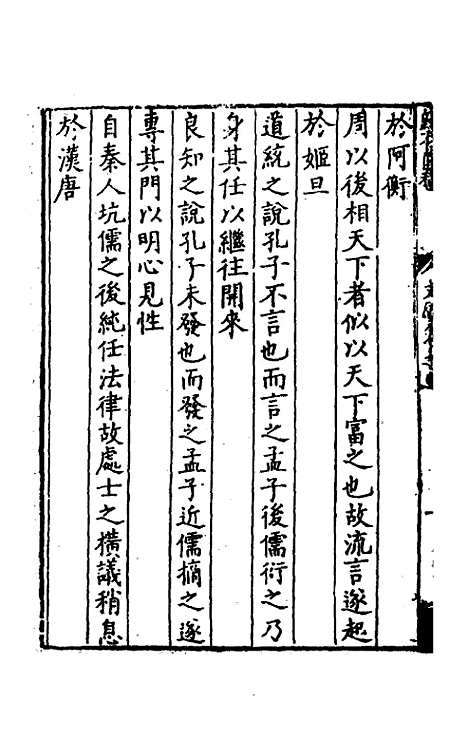 於阿衡
周以後相天下者似以天下富之也故流言遂起
於姬旦
道統之說孔子不言也而言之孟子後儒衍之乃
身其任以繼往開來
良知之說孔子未發也而發之孟子近儒摘之遂
專其門以明心見性
自秦人坑儒之後純任法律故處士之橫議稍息
於漢唐